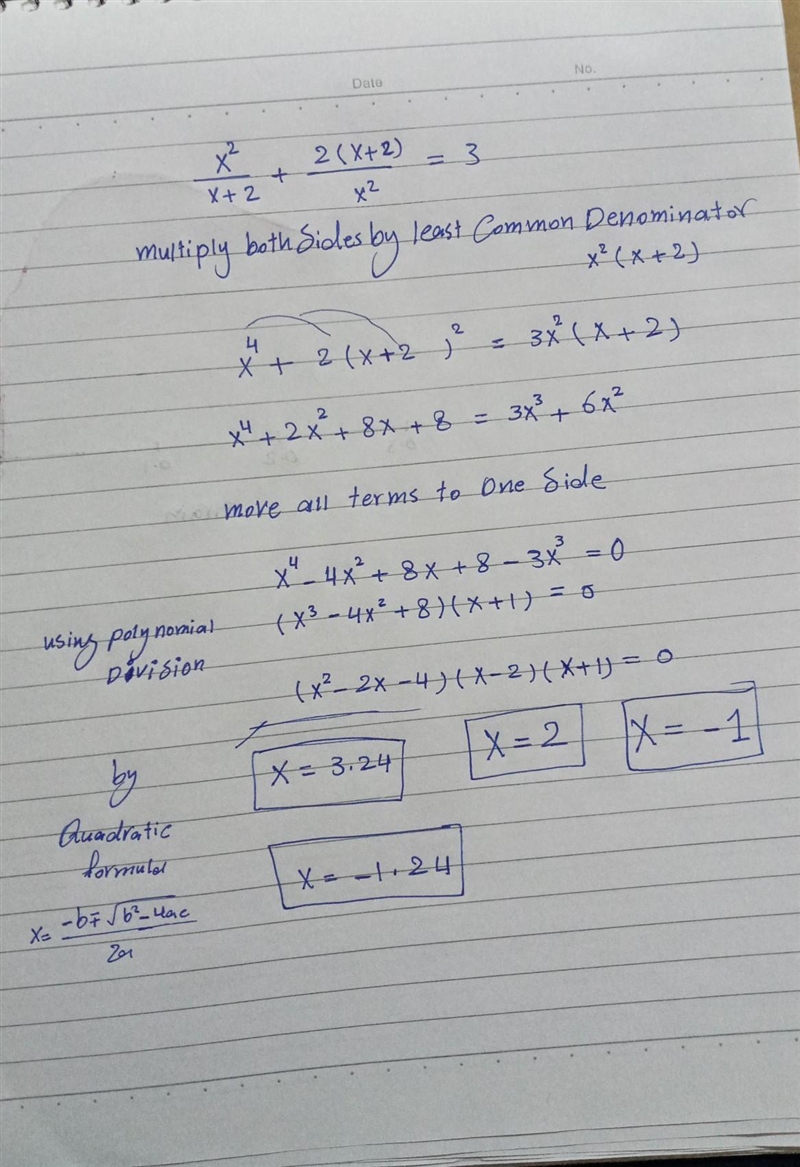 Date No.
x²/(x+2) + 2(x+2)/x² = 3
multiply both sides by least Common Denominator
x²(x+2)
x⁴ + 2(x+2)² = 3x²(x+2)
x⁴ + 2x² + 8x + 8 = 3x³ + 6x²
move all terms to One Side
x⁴ - 4x² + 8x + 8 - 3x³ = 0
using polynomial (x³ - 4x² + 8)(x+1) = 0
Division
(x² - 2x - 4)(x-2)(x+1) = 0
by x = 3.24 x = 2 x = -1
Quadratic
formula x = -1.24
x = (-b∓√(b²-4ac))/2a